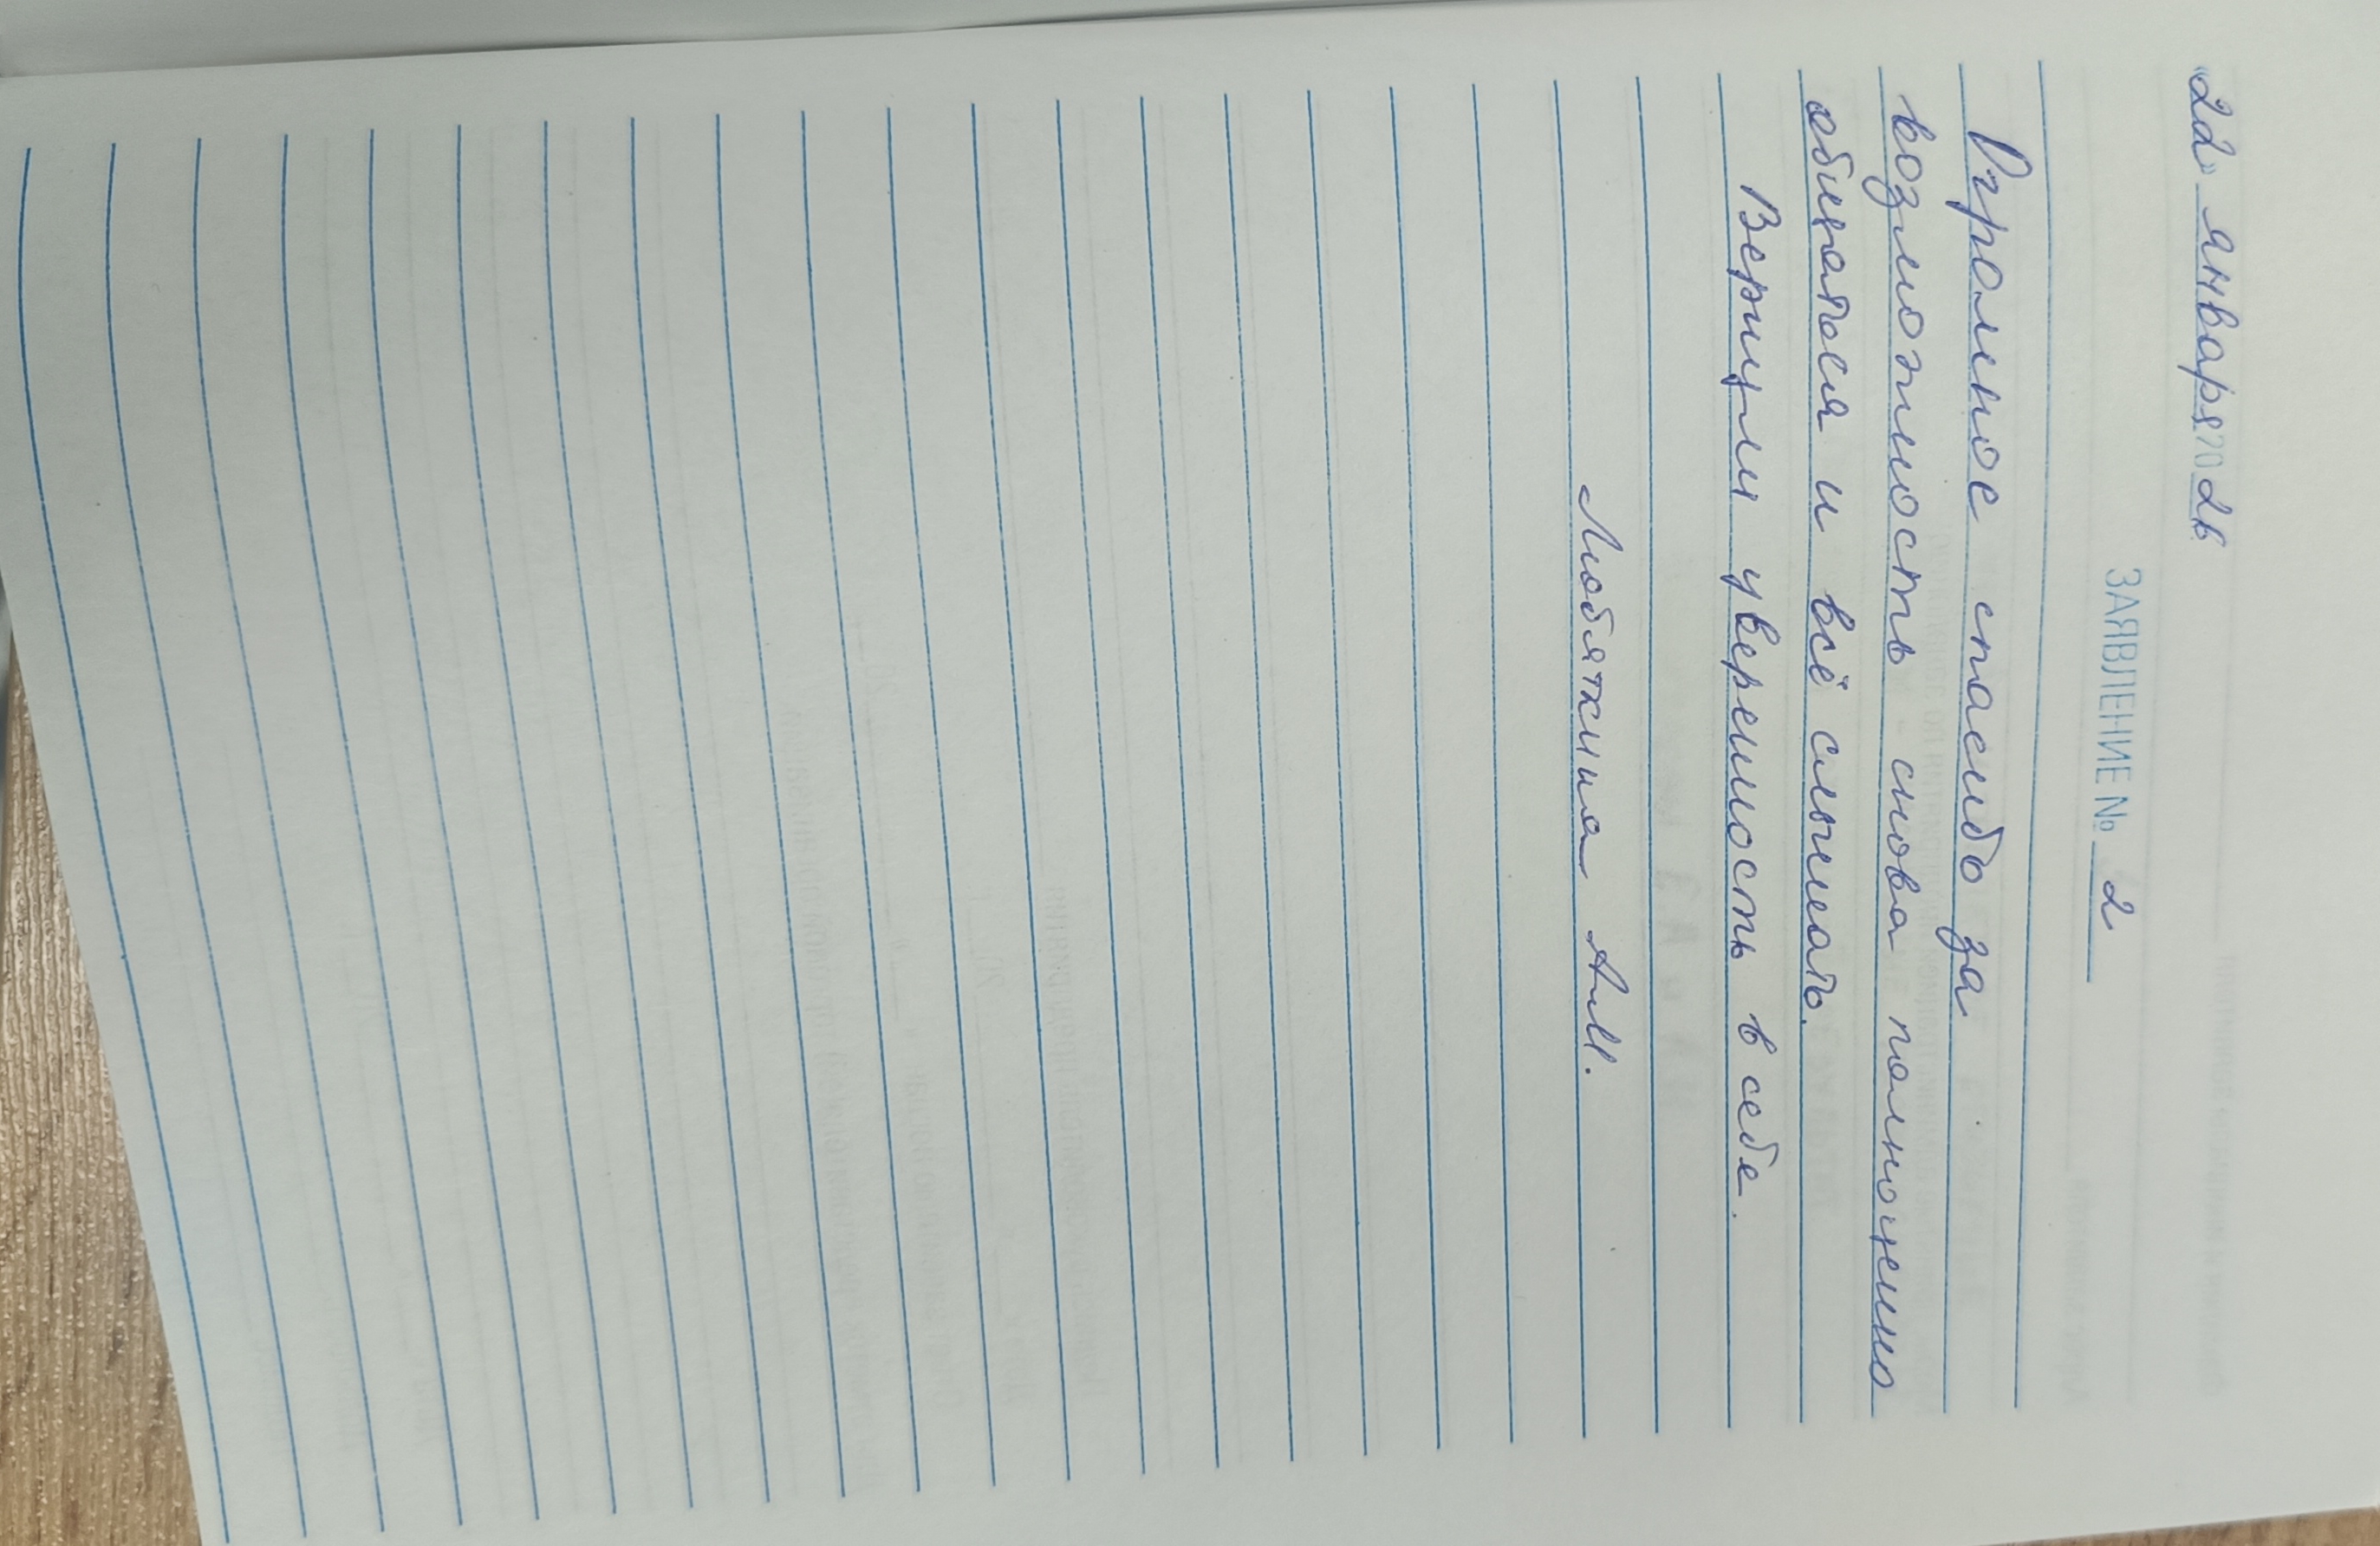 «22» января 2026
ЗАЯВЛЕНИЕ № 2
Огромное спасибо за
возможность снова полноценно
общаться и всё слышать.
Вернули уверенность в себе.
Люляткина А.И.